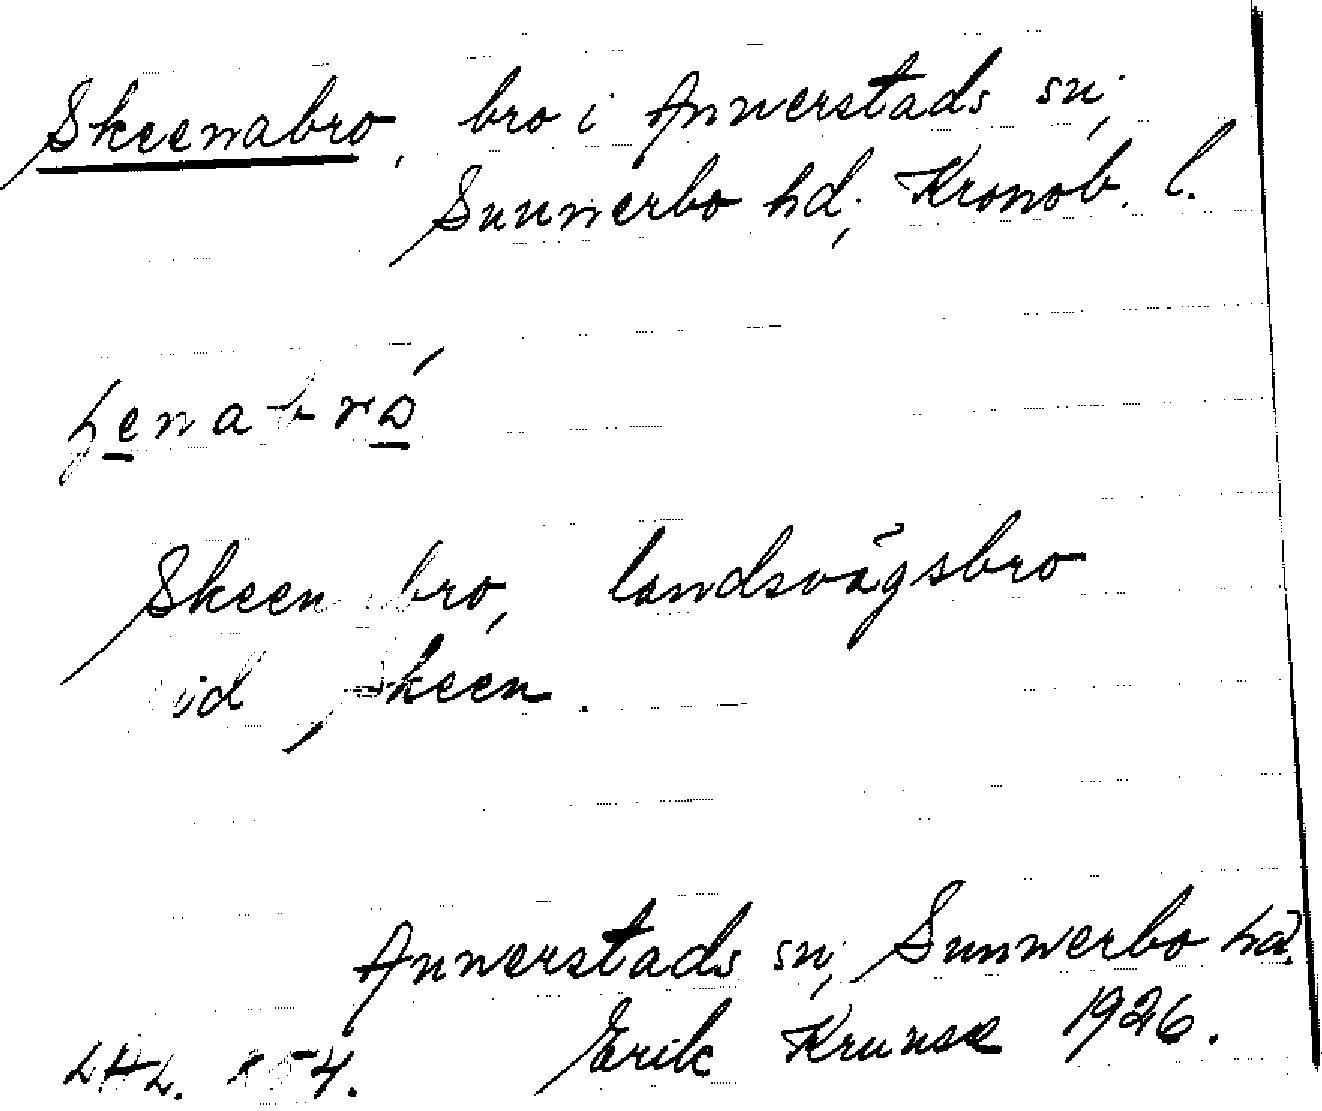 Skeenabro, bro i Annerstads sn,
Sunnerbo hd, Kronob. l.
Skeen bro, landsvägsbro
vid Skeen.
Annerstads sn, Sunnerbo hd.
Erik Krunse 1926.